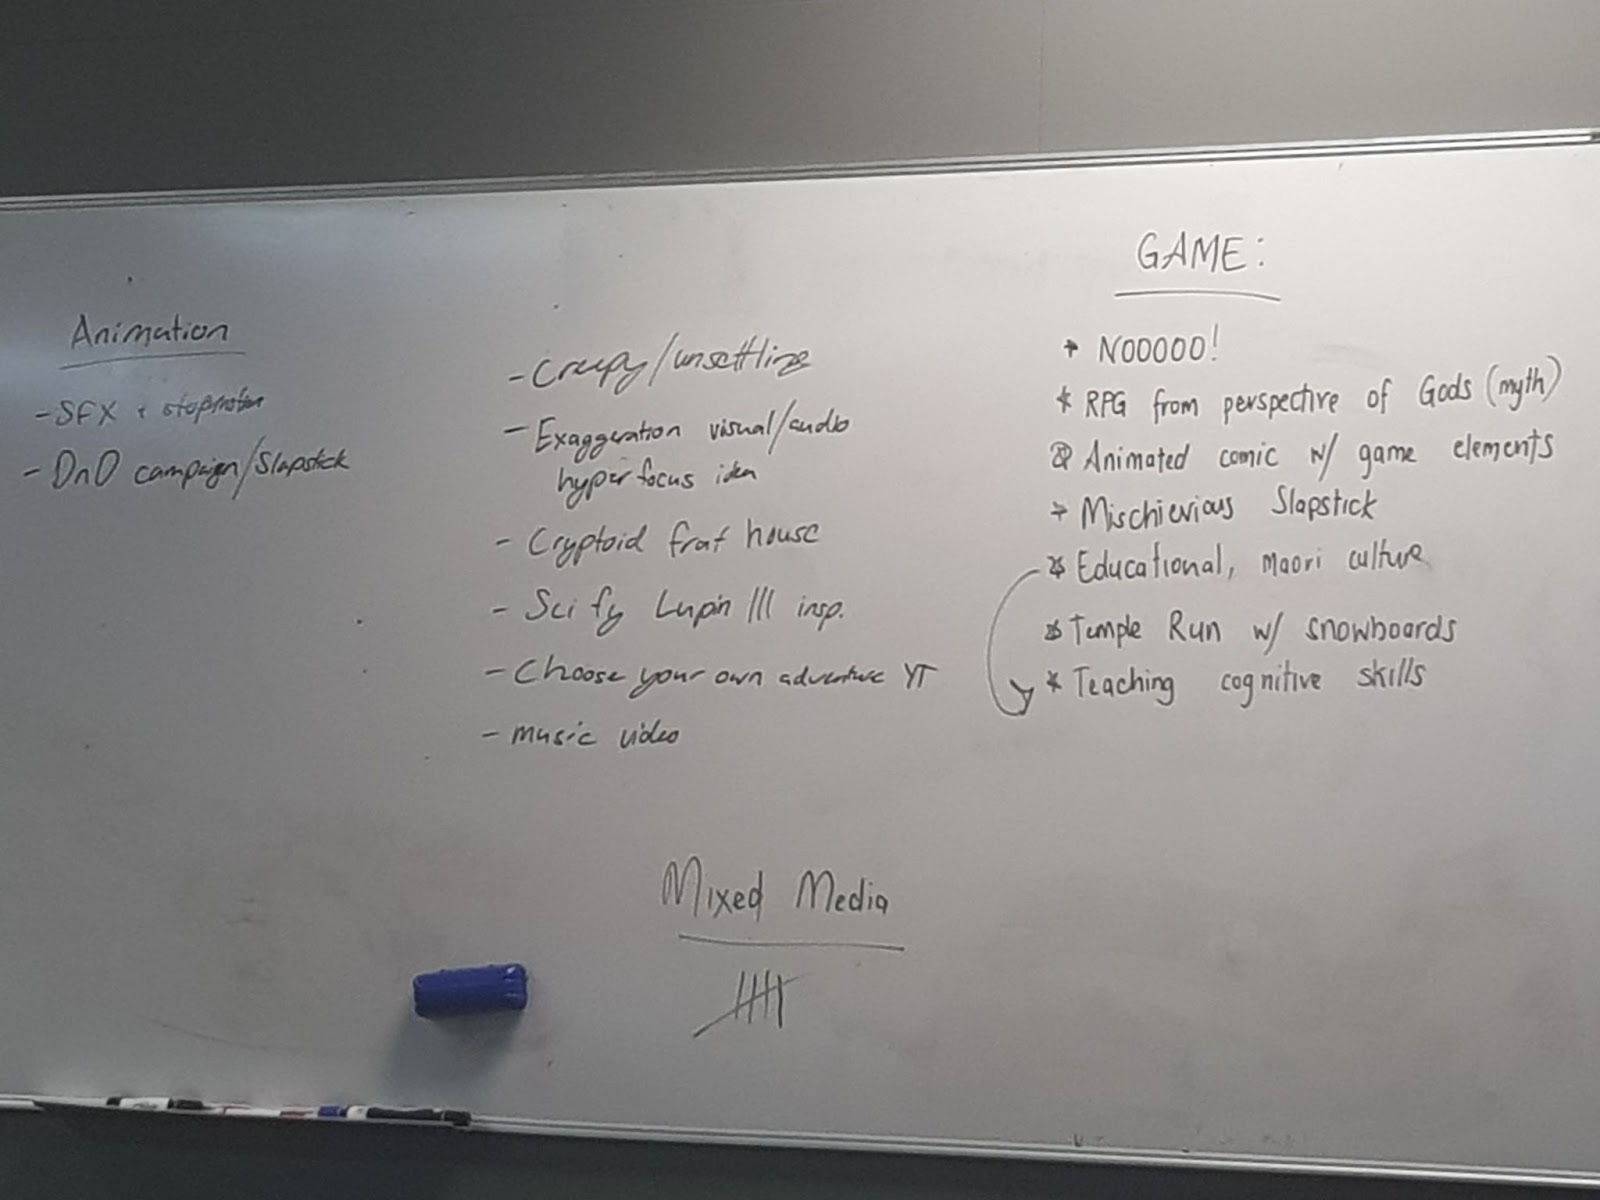 Animation
- SFX + stopmotion
- DnD campaign/Slapstick
- Creepy/unsettling
- Exaggeration visual/audio
hyperfocus idea
- Cryptoid frat house
- Sci fy Lupin III insp.
- Choose your own adventure YT
- music video
GAME:
* NOOOOO!
* RPG from perspective of Gods (myth)
* Animated comic w/ game elements
* Mischievious Slapstick
* Educational, Maori culture
* Temple Run w/ snowboards
* Teaching cognitive skills
Mixed Media